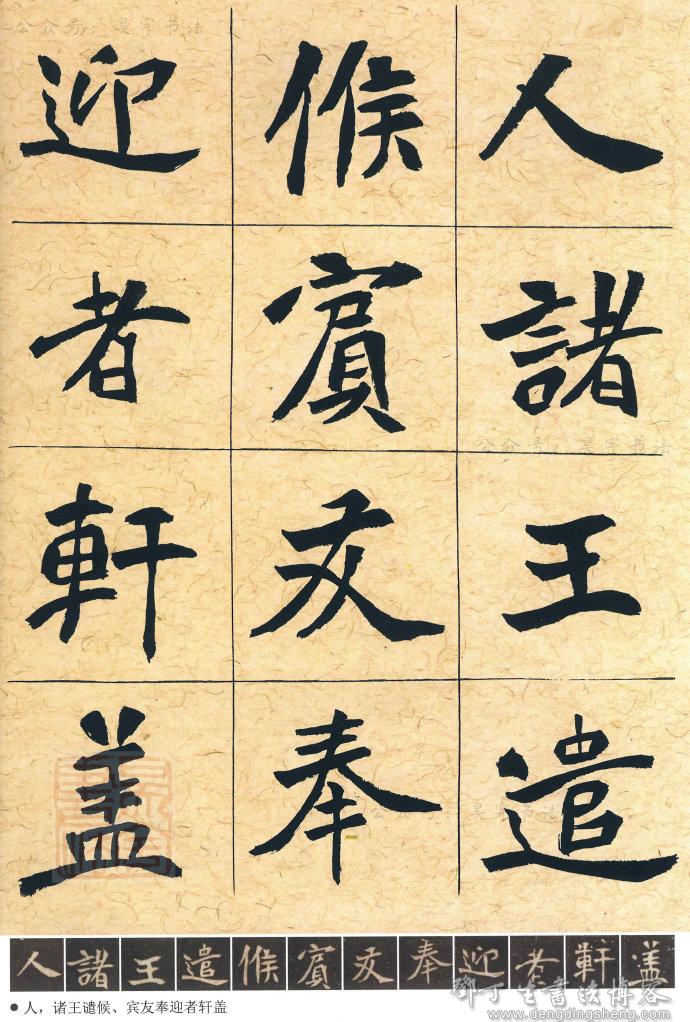 人諸王遣
候賓友奉
迎者軒盖
人諸王遣候賓友奉迎者軒盖
● 人，诸王谴候、宾友奉迎者轩盖
鄧丁生书法博客
www.dengdingsheng.com